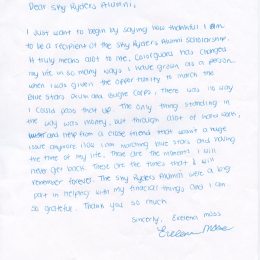 Dear Sky Ryders Alumni,
I Just want to begin by saying how thankful I am
to be a recipient of the Sky Ryders Alumni Scholarship.
It truly means alot to me. Colorguard has changed
my life in so many ways. I have grown as a person.
when I was given the opportunity to march the
Blue Stars Drum and Bugle Corps, There was no way
I could pass that up. The only thing standing in
the way was money, but through alot of hard work,
and help from a close friend that wasn't a huge
issue anymore. Now I am marching Blue Stars and having
the time of my life. These are the moments I will
never get back. These are the times that I will
remember forever. The Sky Ryders Alumni were a big
part in helping with my financial things, and I am
so grateful. Thank you so much
Sincerely, Moss